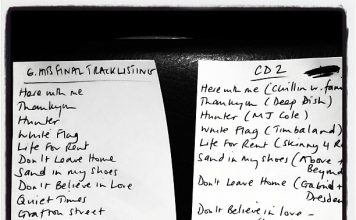 G. MTS FINAL TRACKLISTING
Here with me
Thankyou
Hunter
White Flag
Life For Rent
Don't Leave Home
Sand in my Shoes
Don't Believe in Love
Quiet Times
Grafton Street
CD 2
Here with me (Chillin w. fam
Thankyou (Deep Dish)
Hunter (MJ Cole)
White Flag (Timbaland)
Life For Rent (Skinny 4 R
Sand in my Shoes (Above +
Beyond
Don't Leave Home (Gabriel +
Dresden
Don't Believe in love -